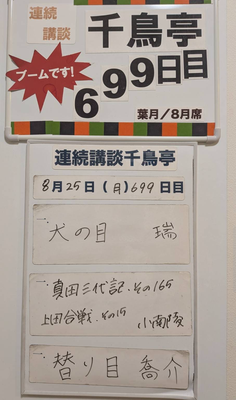 連続
講談
千鳥亭
ブームです!
699日目
葉月／8月席
連続講談千鳥亭
8月25日(月)699日目
一、犬の目 瑞
一、真田三代記・その165
上田合戦・その15 小南陵
一、替り目 喬介